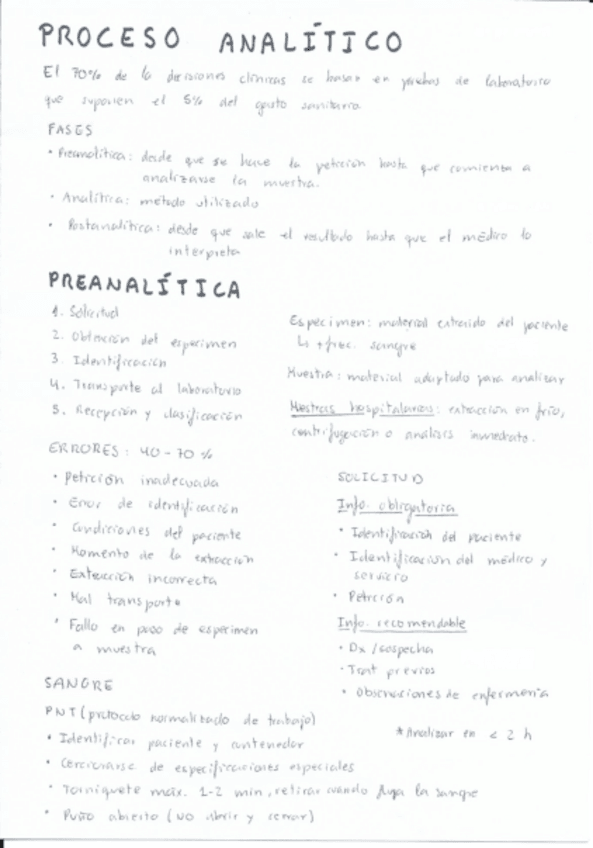 PROCESO ANALÍTICO
El 70% de la decisiones clínicas se basan en pruebas de laboratorio
que suponen el 5% del gasto sanitario.
FASES
• Preanalítica: desde que se hace la petición hasta que comienza a
analizarse la muestra.
• Analítica: método utilizado
• Postanalítica: desde que sale el resultado hasta que el médico lo
interpreta
PREANALÍTICA
1. Solicitud
2. Obtención del especimen
3. Identificación
4. Transporte al laboratorio
5. Recepción y clasificación
Especimen: material extraido del paciente
↳ + frec. sangre
Muestra: material adaptado para analizar
Mestras hospitalarias: extracción en frío,
centrifugación o análisis inmediato.
ERRORES: 40-70%
• Petición inadecuada
• Error de identificación
• Condiciones del paciente
• Momento de la extracción
• Extracción incorrecta
• Mal transporte
• Fallo en paso de especimen
a muestra
SOLICITUD
Info. obligatoria
• Identificación del paciente
• Identificacion del médico y
servicio
• Petición
Info. recomendable
• Dx / sospecha
• Trat previos
• Observaciones de enfermería
* Analizar en < 2 h
SANGRE
PNT (protocolo normalizado de trabajo)
• Identificar paciente y contenedor
• Cerciorarse de especificaciones especiales
• Torniquete máx. 1-2 min, retirar cuando fluya la sangre
• Puño abierto (NO abrir y cerrar)